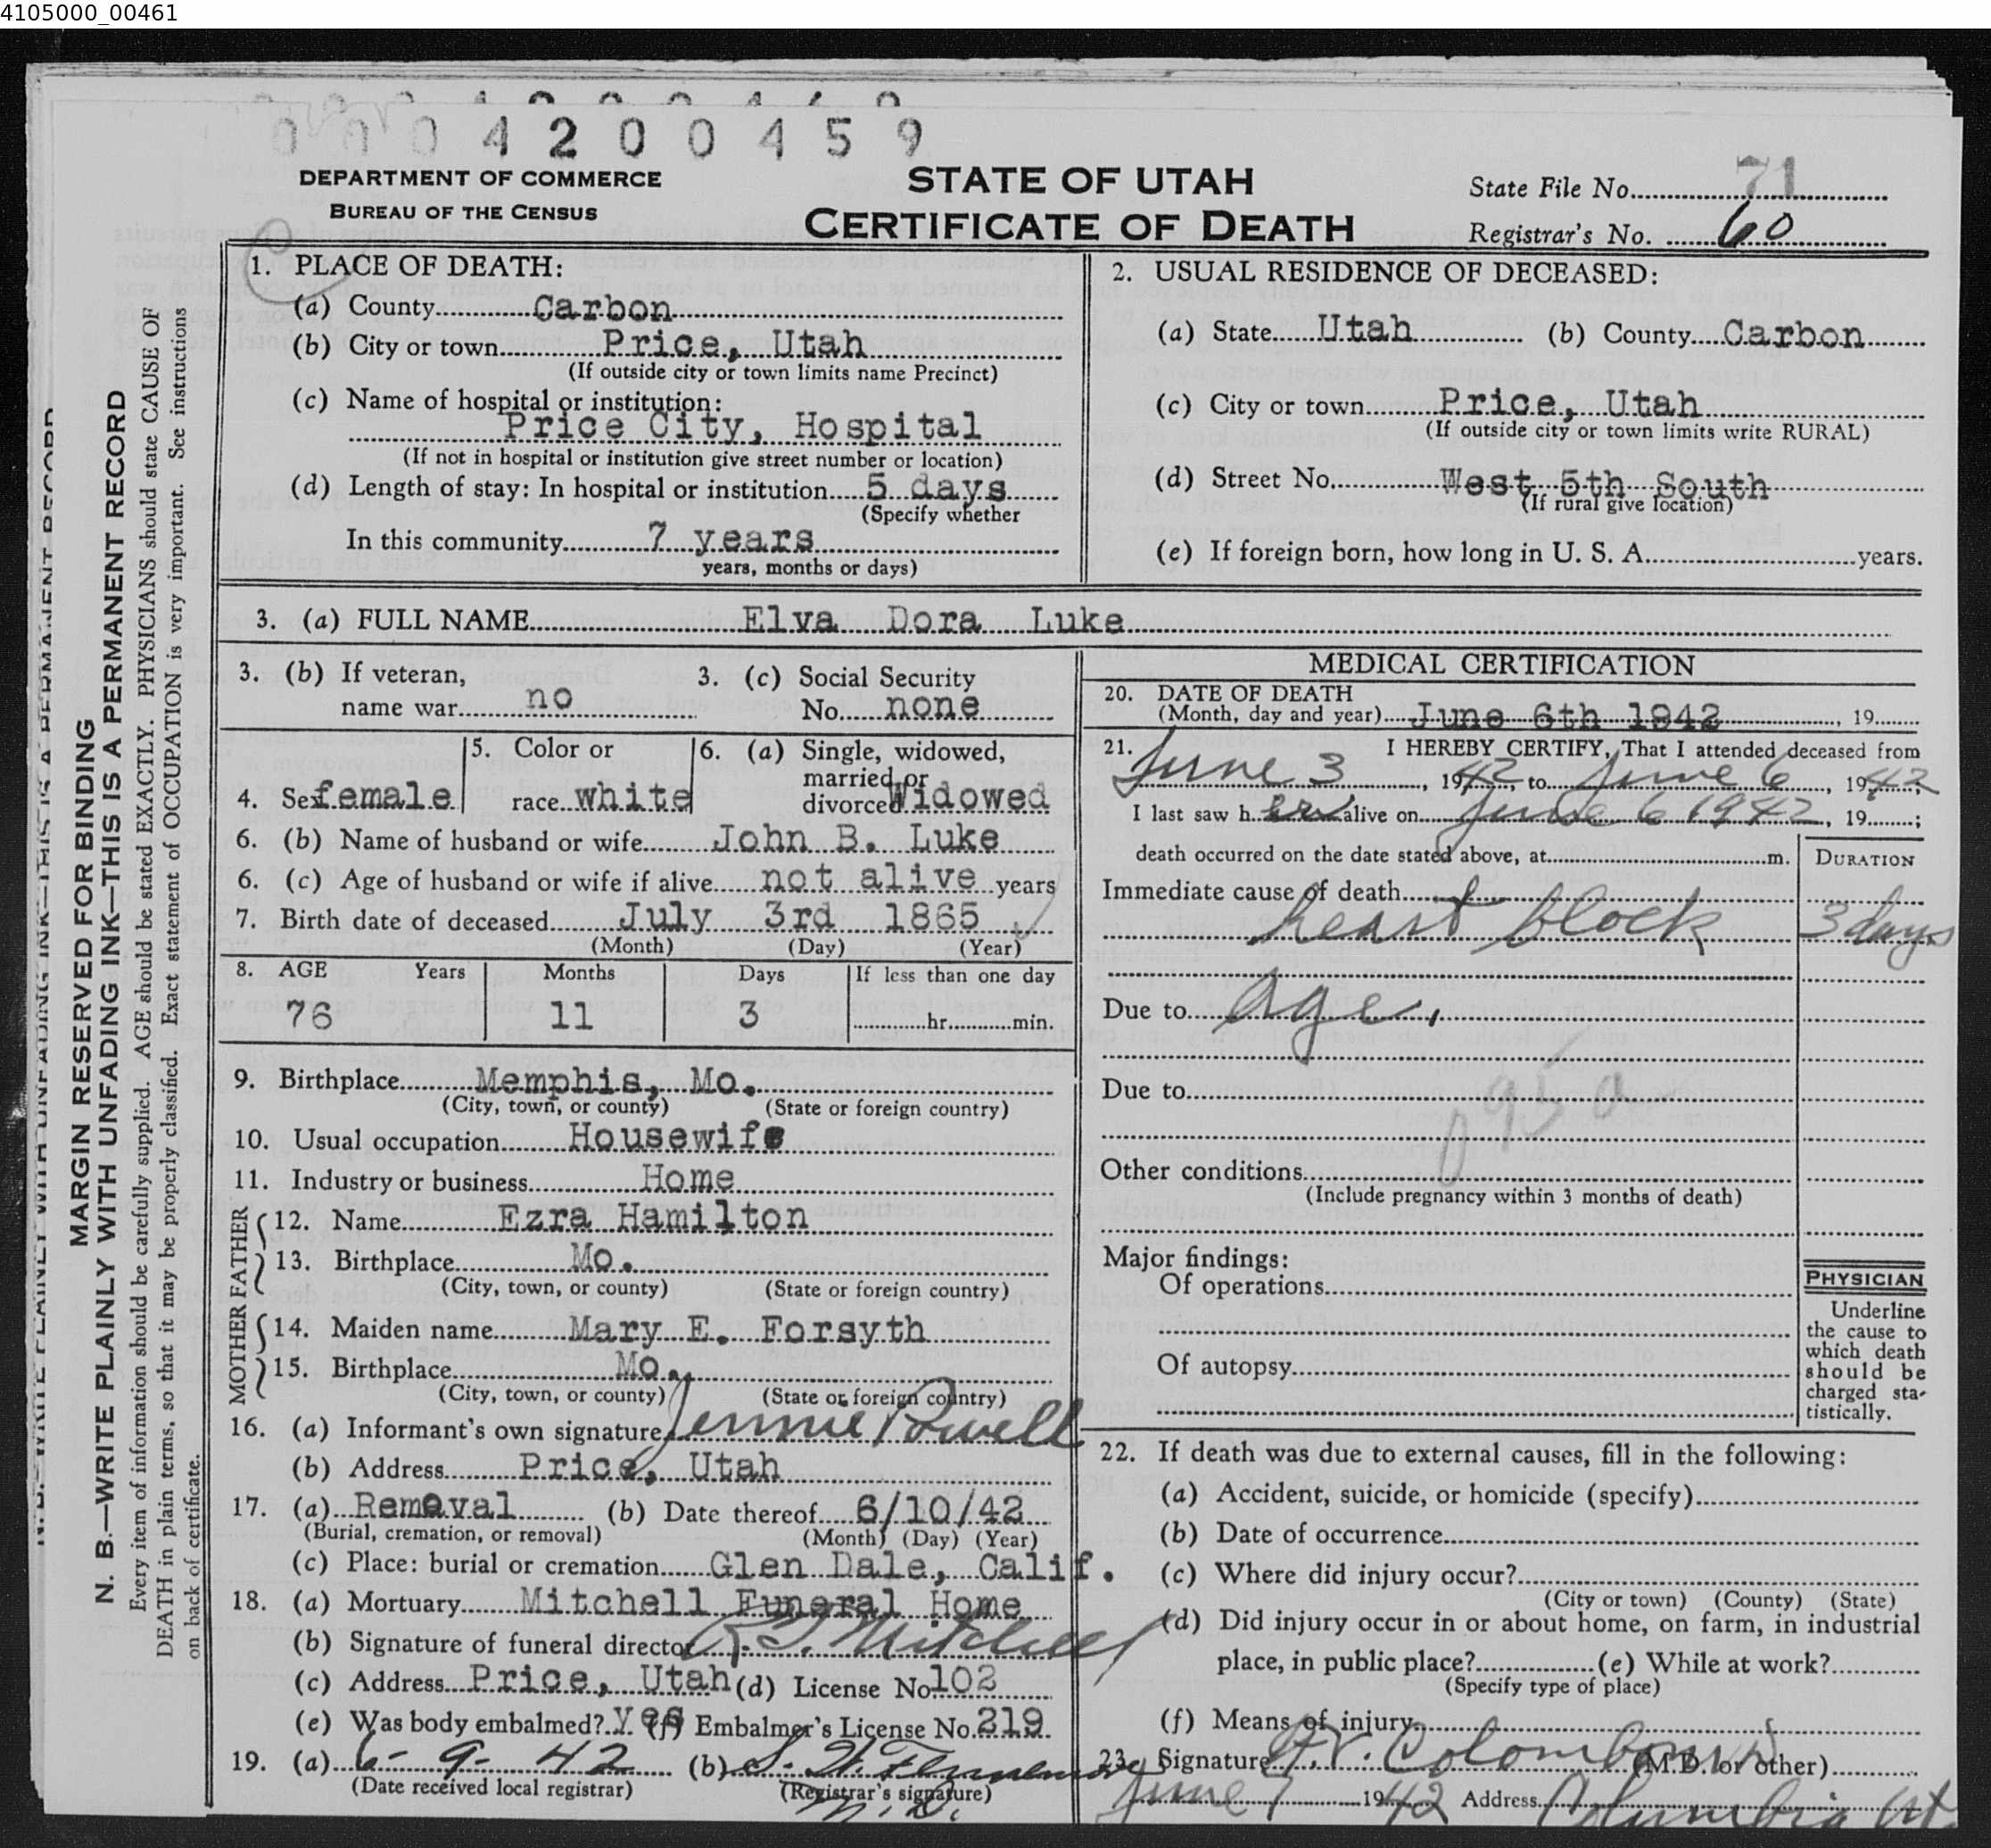 4105000_00461
0 0 0 4 2 0 0 4 5 9
DEPARTMENT OF COMMERCE
BUREAU OF THE CENSUS
STATE OF UTAH
CERTIFICATE OF DEATH
State File No. 71
Registrar's No. 60
MARGIN RESERVED FOR BINDING
N. B.—WRITE PLAINLY WITH UNFADING INK—THIS IS A PERMANENT RECORD
Every item of information should be carefully supplied. AGE should be stated EXACTLY. PHYSICIANS should state CAUSE OF
DEATH in plain terms, so that it may be properly classified. Exact statement of OCCUPATION is very important. See instructions
on back of certificate.
1. PLACE OF DEATH:
(a) County Carbon
(b) City or town Price, Utah
(If outside city or town limits name Precinct)
(c) Name of hospital or institution:
Price City, Hospital
(If not in hospital or institution give street number or location)
(d) Length of stay: In hospital or institution 5 days
(Specify whether
In this community 7 years
years, months or days)
2. USUAL RESIDENCE OF DECEASED:
(a) State Utah (b) County Carbon
(c) City or town Price, Utah
(If outside city or town limits write RURAL)
(d) Street No. West 5th South
(If rural give location)
(e) If foreign born, how long in U. S. A. years.
3. (a) FULL NAME Elva Dora Luke
3. (b) If veteran,
name war no
3. (c) Social Security
No. none
4. Sex female
5. Color or
race white
6. (a) Single, widowed,
married or
divorced Widowed
6. (b) Name of husband or wife John B. Luke
6. (c) Age of husband or wife if alive not alive years
7. Birth date of deceased July 3rd 1865
(Month) (Day) (Year)
8. AGE Years Months Days If less than one day
76 11 3 hr. min.
9. Birthplace Memphis, Mo.
(City, town, or county) (State or foreign country)
10. Usual occupation Housewife
11. Industry or business Home
FATHER
12. Name Ezra Hamilton
13. Birthplace Mo.
(City, town, or county) (State or foreign country)
MOTHER
14. Maiden name Mary E. Forsyth
15. Birthplace Mo.
(City, town, or county) (State or foreign country)
16. (a) Informant's own signature Jennie Powell
(b) Address Price, Utah
17. (a) Removal (b) Date thereof 6/10/42
(Burial, cremation, or removal) (Month) (Day) (Year)
(c) Place: burial or cremation Glen Dale, Calif.
18. (a) Mortuary Mitchell Funeral Home
(b) Signature of funeral director Mitchell
(c) Address Price, Utah (d) License No. 102
(e) Was body embalmed? yes (f) Embalmer's License No. 219
19. (a) 6-9-42 (b)
(Date received local registrar) (Registrar's signature)
M.D.
MEDICAL CERTIFICATION
20. DATE OF DEATH
(Month, day and year) June 6th 1942, 19
21. I HEREBY CERTIFY, That I attended deceased from
June 3, 1942, to June 6, 1942;
I last saw her alive on June 6 1942, 19;
death occurred on the date stated above, at m.
DURATION
Immediate cause of death
heart block 3 days
Due to age.
Due to
Other conditions
(Include pregnancy within 3 months of death)
Major findings:
Of operations
Of autopsy
PHYSICIAN
Underline
the cause to
which death
should be
charged sta-
tistically.
22. If death was due to external causes, fill in the following:
(a) Accident, suicide, or homicide (specify)
(b) Date of occurrence
(c) Where did injury occur?
(City or town) (County) (State)
(d) Did injury occur in or about home, on farm, in industrial
place, in public place? (e) While at work?
(Specify type of place)
(f) Means of injury
23. Signature Colombo (M.D. or other)
June 7 1942 Address Columbia Ut.